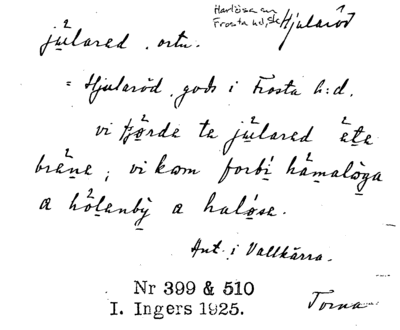 Harlösa sn
Frosta hd, Sk
Hjularöd
jülared, ortn.
= Hjularöd, gods i Frosta h:d.
vi tjörde te jülared äte
bräne; vi kom forbi hämalöga
a hölenbÿ a halösa.
Ant. i Vallkärra.
Nr 399 & 510
I. Ingers 1925.
Torna